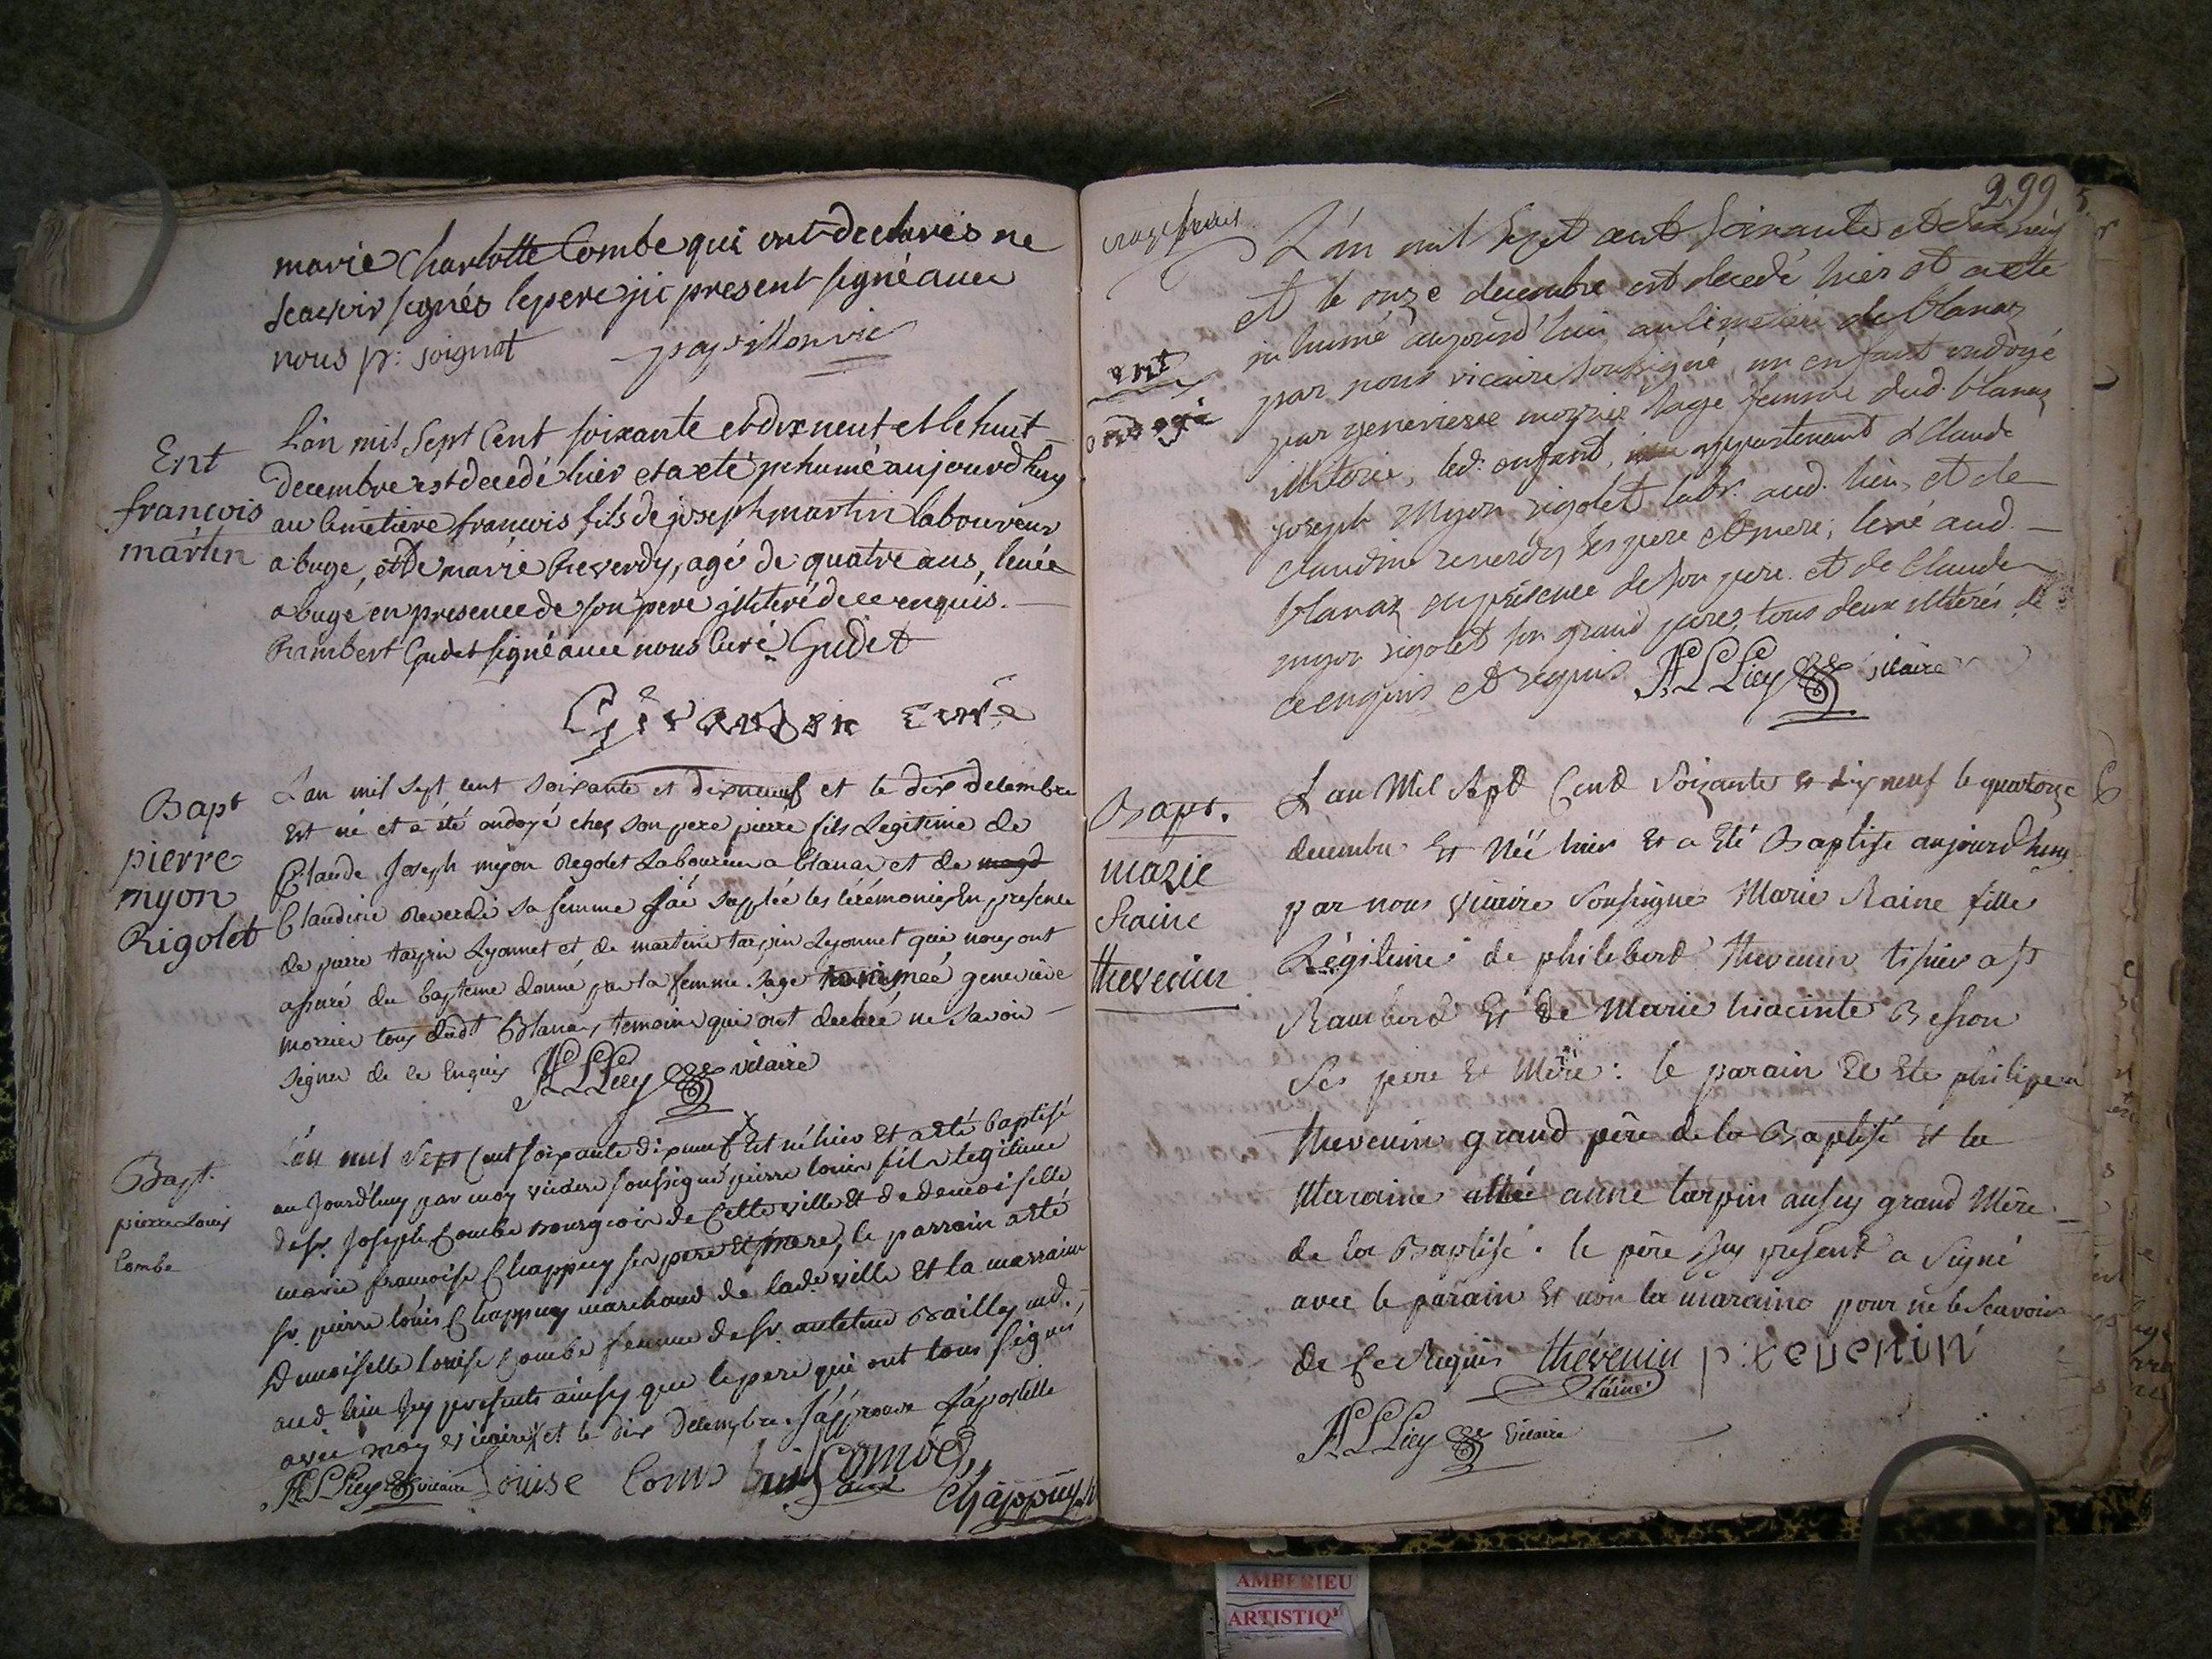 marie Charlotte Combe qui ont declarés ne
scavoir signés le pere jci present signé avec
nous pr: joignat papillon vic
Ent
francois
martin
L'án mil Sept Cent soixante et dix neuf et le huit
decembre est decedé hier et a eté jnhumé aujourdhuy
au cimetiere francois fils de joseph martin laboureur
a buge, et de marie Reverdy, agé de quatre ans, levée
a bugé en presence de son pere jlliteré de ce enquis.
Rambert Gudet signé avec nous Curé Gudet
curé
Bapt
pierre
myon
Rigolet
L'an mil sept cent soixante et dix neuf et le dix decembre
Est né et a été ondoyé chez son pere pierre fils Legitime de
Claude Joseph myon Regolet Laboureur a blanaz et de magd
Claudine Reverdi sa femme j'ái supplée les cérémonies En presence
de pierre tarpin Lyonnet et de martine tarpin Lyonnet qui nous ont
assuré du bapteme donné par la femme sage geneviève
morrier tous dudt Blanaz temoins qui ont declaré ne savoir
signer de ce Enquis vicaire
Bapt.
pierre Louis
Combe
L'án mil Sept Cent soixante dixneuf X Est né hier Et a eté baptisé
au Jourd'huy par moy vicaire soussigné pierre louis fils legitime
de sr. Joseph Combe bourgeois de Cette ville Et de demoiselle
marie francoise Chappuy ses pere Et mere, le parrain a eté
sr. pierre louis Chappuy marchand de lad. ville Et la marraine
Demoiselle louise Combe femme de sr. Bailly md.
aud. lieu Jcy presents ainsy que le pere qui ont tous signés
avec moy vicaire X et le dix decembre. J'ápprouve l'ápostille
vicaire Louise Comb Combe
Chappuy
299
Ent
ondoyé
L'án mil sept cent soixante et dix neuf
et le onze decembre est decedé hier et a eté
inhumé aujourd'hui au Cimetiere de blanaz
par nous vicaire soussigné, un enfant ondoyé
par genevieve morrier sage femme dud. blanaz
illiterée, led. enfant, appartenant à Claude
joseph Myon rigolet labr. aud. lieu, et de
Claudine reverdy ses pere et mere; levé aud.
blanaz en présence de son pere et de Claude
myon rigolet son grand pere, tous deux illiterés de
ce enquis et requis vicaire
Bapt.
marie
Raine
thevenin
L'an Mil Sept Cent Soixante et dix neuf le quatorze
decembre Et Née hier Et a Eté Baptisé aujourd'huy
par nous vicaire Soussigné Marie Raine fille
Légitime de philibert thevenin tissier a St
Rambert Et de Marie hiacinte Besson
Ses pere Et Mère: le parain a Eté philipe
thevenin grand père de la Baptisé Et la
Maraine anne tarpin aussy grand Mère
de la Baptisé. le père Jcy présent a Signé
avec le parain Et non la maraine pour ne le Scavoir
de Ce Requis thévenin p: tevenin
L'ainé
vicaire
AMBERIEU
ARTISTIQ